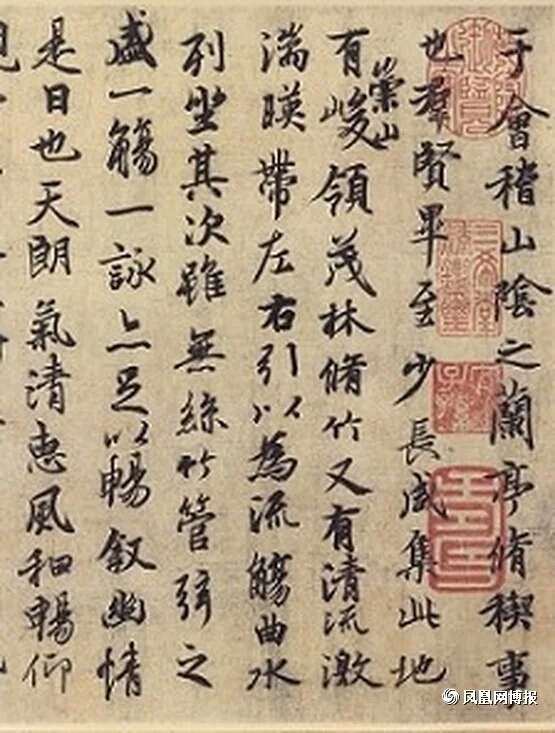 于會稽山陰之蘭亭脩稧事
也羣賢畢至少長咸集此地
有崇山峻領茂林脩竹又有清流激
湍暎帶左右引以為流觴曲水
列坐其次雖無絲竹管弦之
盛一觴一詠亦足以暢敘幽情
是日也天朗氣清惠風和暢仰
凤凰网博报